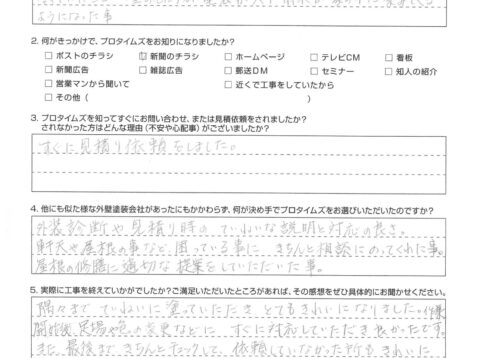 ようになった事
2. 何がきっかけで、プロタイムズをお知りになりましたか?
□ ポストのチラシ □ 新聞のチラシ □ ホームページ □ テレビCM □ 看板
□ 新聞広告 □ 雑誌広告 □ 郵送DM □ セミナー □ 知人の紹介
□ 営業マンから聞いて □ 近くで工事をしていたから
□ その他 ( )
3. プロタイムズを知ってすぐにお問い合わせ、または見積依頼をされましたか?
されなかった方はどんな理由(不安や心配事)がございましたか?
すぐに見積り依頼をしました。
4. 他にも似た様な外壁塗装会社があったにもかかわらず、何が決め手でプロタイムズをお選びいただいたのですか?
外装診断や見積り時のていねいな説明と対応の良さ。
軒天や屋根の事など、困っている事に きちんと相談にのってくれた事。
屋根の修膳に適切な提案をしていただいた事。
5. 実際に工事を終えていかがでしたか?ご満足いただいたところがあれば、その感想をぜひ具体的にお聞かせください。
隅々まで ていねいに塗っていただき とてもきれいになりました。作業
開始後、足場や色の変更などに すぐに対応していただき良かったです。
また、最後まで きちんとチェックして、依頼していなかった所もきれいに